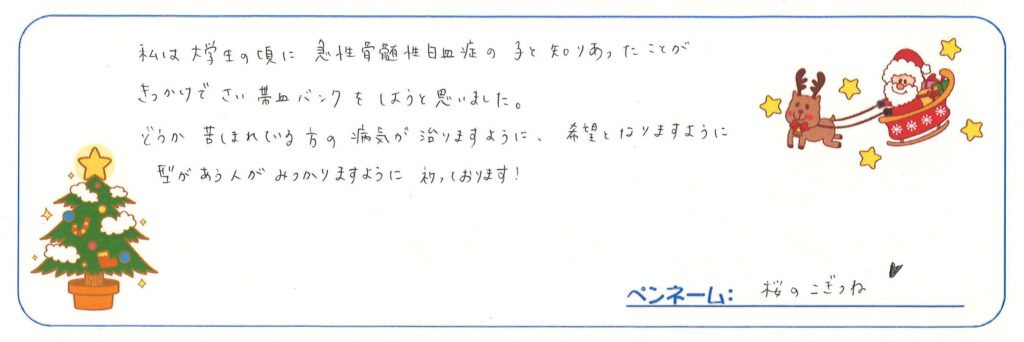 私は大学生の頃に 急性骨髄性白血症の子と知りあったことが
きっかけでさい帯血バンクをしようと思いました。
どうか苦しまれている方の病気が治りますように、希望となりますように
型があう人がみつかりますように祈っております!
ペンネーム: 桜のこぎつね